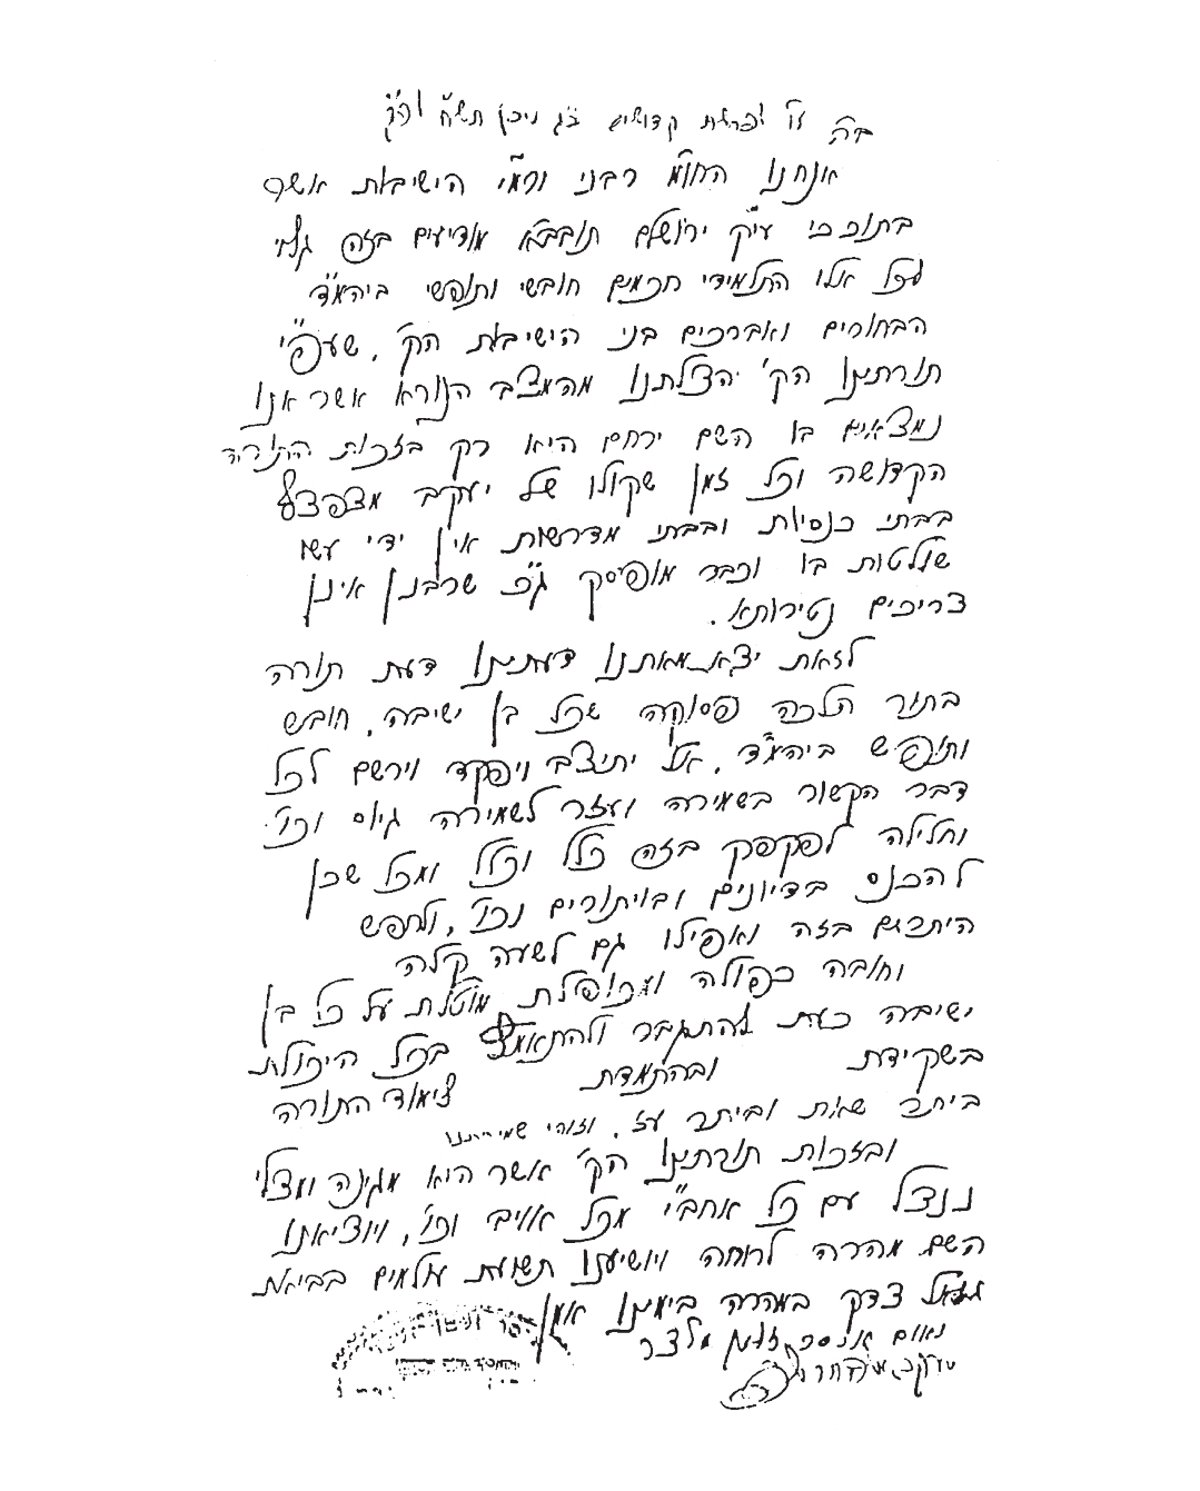 ב"ה יו' לפרשת קדושים כ"ג ניסן תש"ח לפ"ק
אנחנו הח"מ רבני ורמ"י הישיבות אשר
בתוככי עיה"ק ירושלם תובב"א מודיעים בזה גלוי
לכל אלו התלמידי חכמים חובשי ותופשי ביהמ"ד
הבחורים ואברכים בני הישיבות הק', שעפ"י
תורתינו הק' הצלתנו מהמצב הנורא אשר אנו
נמצאים בו השם ירחם היא רק בזכות התורה
הקדושה וכל זמן שקולו של יעקב מצפצף
בבתי כנסיות ובבתי מדרשות אין ידי עשו
שולטות בו וכבר מופיסק ג"כ שרבנן אינן
צריכים נטירותא.
לזאת יצא מאתנו דעתינו דעת תורה
בתור הלכה פסוקה שכל בן ישיבה, חובש
ותופש ביהמ"ד, אל יתיצב ויפקד וירשם לכל
דבר הקשור בשמירה ועזר לשמירה גיוס וכו'
וחלילה לפקפק בזה כלל וכלל ומכל שכן
להכנס בדיונים ובויתורים וכו', ולחפש
היתרים בזה ואפילו גם לשעה קלה
וחובה כפולה ומכופלת מוטלת על כל בן
ישיבה כעת להתגבר ולהתאמץ בכל היכולת
בשקידת ובהתמדת לימוד התורה
ביתר שאת וביתר עז, וזוהי שמירתנו
ובזכות תורתינו הק' אשר היא מגינה ומצלי
ננצל עם כל אחב"י מכל אויב וכו', ויוציאנו
השם מהרה לרוחה ויושיענו תשועת עולמים בביאת
גואל צדק במהרה בימינו אמן
נאום איסר זלמן מלצר